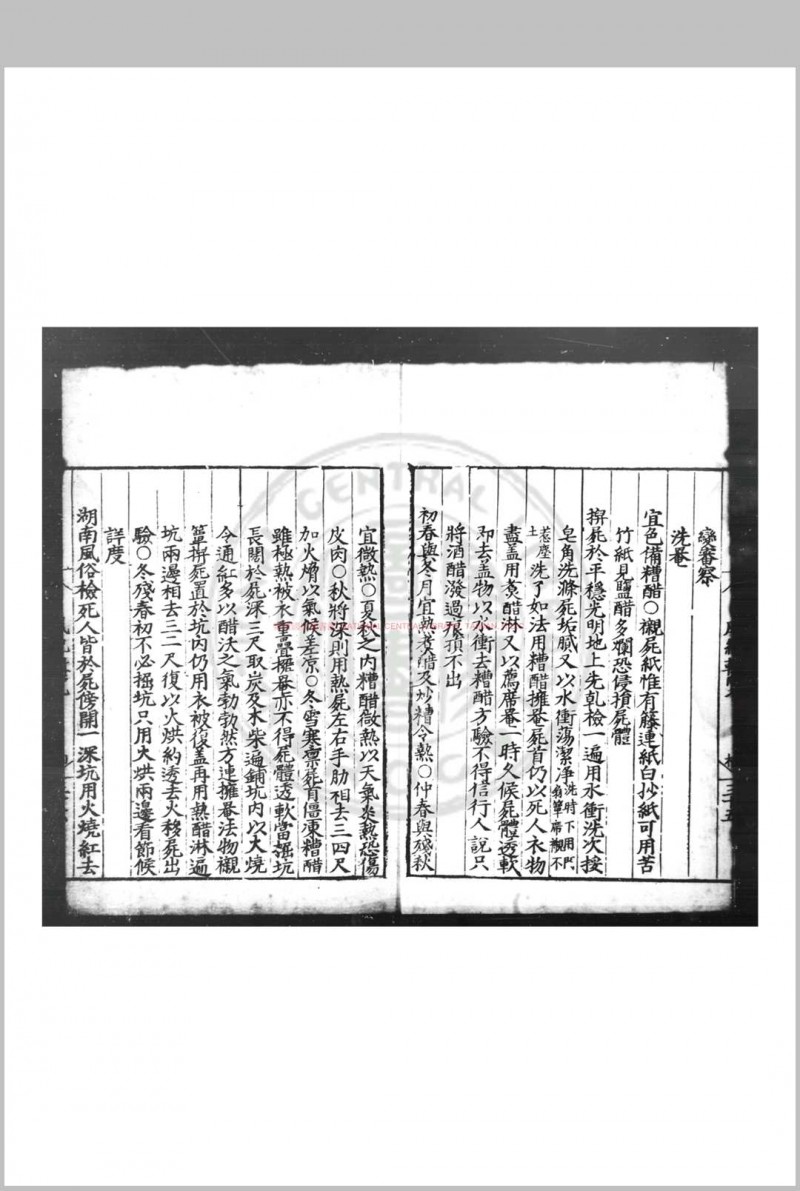 審察
洗罨
宜多備糟醋○襯屍紙惟有藤連紙白抄紙可用若
竹紙見鹽醋多爛恐侵損屍體
擀屍於平穩光明地上先乹檢一遍用水衝洗次挼
皂角洗滌屍垢膩又以水衝蕩潔淨洗時下用門扇簟席襯不
惹塵土洗了如法用糟醋擁罨屍首仍以死人衣物
盡盖用煑醋淋又以薦席罨一時久候屍體透軟
即去盖物以水衝去糟醋方驗不得信行人說只
將酒醋潑過痕損不出
初春與冬月宜熱煑醋及炒糟令熱○仲春與殘秋
宜微熱○夏秋之內糟醋微熱以天氣炎熱恐傷
皮肉○秋將深則用熱屍左右手肋相去三四尺
加火熁以氣候差凉○冬雪寒凛屍首僵凍糟醋
雖極熱被衣重疊擁罨亦不得屍體透軟當掘坑
長闊於屍深三尺取炭及木柴遍鋪坑內以火燒
令通紅多以醋沃之氣勃勃然方連擁罨法物襯
簟擀屍置於坑內仍用衣被復盖再用熱醋淋遍
坑兩邊相去三二尺復以火烘約透去火移屍出
驗○冬殘春初不必掘坑只用火烘兩邊看節候
詳度
湖南風俗檢死人皆於屍傍開一深坑用火燒紅去